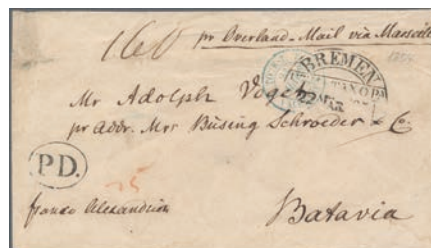 160 pr Overland-Mail via Marseille
BREMEN
22 MAR
Mr Adolph Vogel
pr addr. Mrs Büsing Schroeder & Co.
P.D.
franco Alexandrien
Batavia